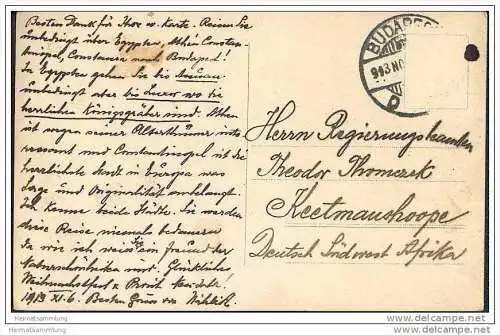 Besten Dank für Ihre w. Karte. Reisen Sie
unbedingt über Egypten, Athen Constan-
tinopel, Constanza nach Budapest!
In Egypten gehen Sie bis Assuan
unbedingt aber bis Luxor wo die
herrlichen Königsgräber sind. Athen
ist wegen seiner Alterthümer inte
ressant und Constantinopel ist die
herrlichste Stadt in Europa was
Lage und Originalität anbelangt.
Ich kenne beide Städte. Sie werden
diese Reise niemals bedauern
da wie ich weiss ein Freund der
Naturschönheiten sind. Glückliches
Weihnachtsfest &
1913 XI. 6. Besten Gruss
BUDAPEST
913 NO
Herrn Regierungsbeamten
Theodor Thomczek
Keetmanshoope
Deutsch Südwest Afrika
Heimatsammlung
Heimatsammlung.de
Heimatsammlung
Heimatsammlung.de